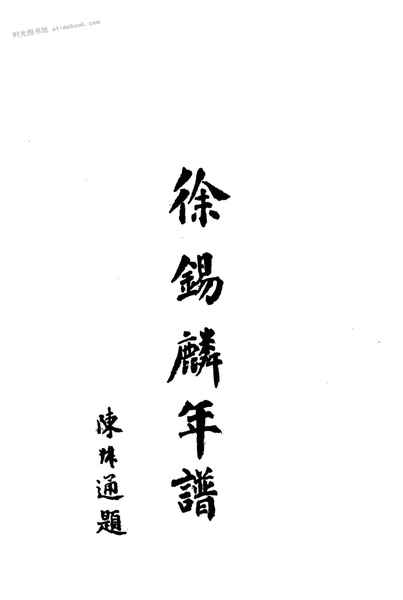 时光图书馆 etimebook.com
徐錫麟年譜
陳 通題